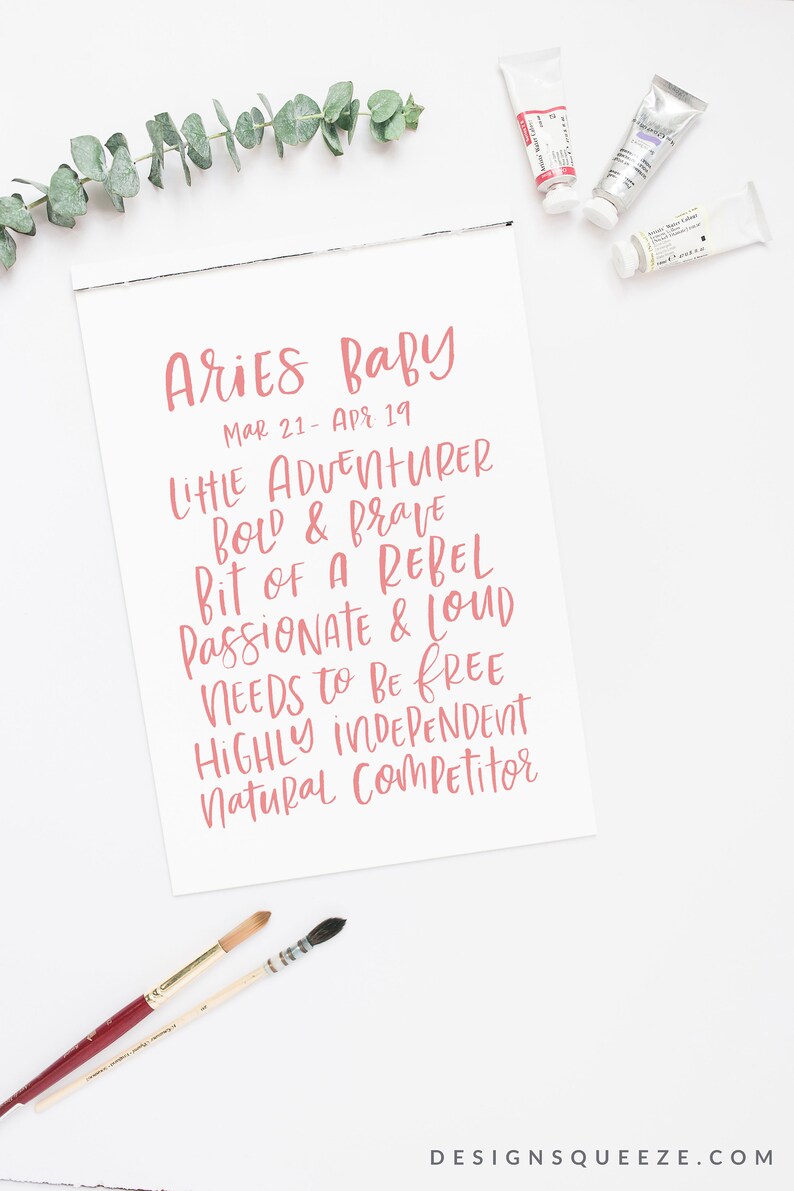 Aries Baby
Mar 21 - Apr 19
Little Adventurer
Bold & Brave
Bit of a Rebel
Passionate & Loud
Needs to be free
Highly independent
Natural Competitor
Artists' Water Colour
Artists' Water Colour
DESIGNSQUEEZE.COM